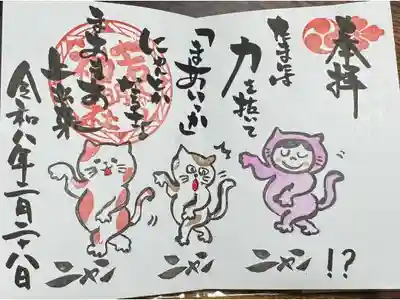 奉拝
たまには
力を抜いて
「まあいっか」
にゃんとか
なるさ
上出来
令和八年二月二十八日
ニャン!?
ニャン
ニャン